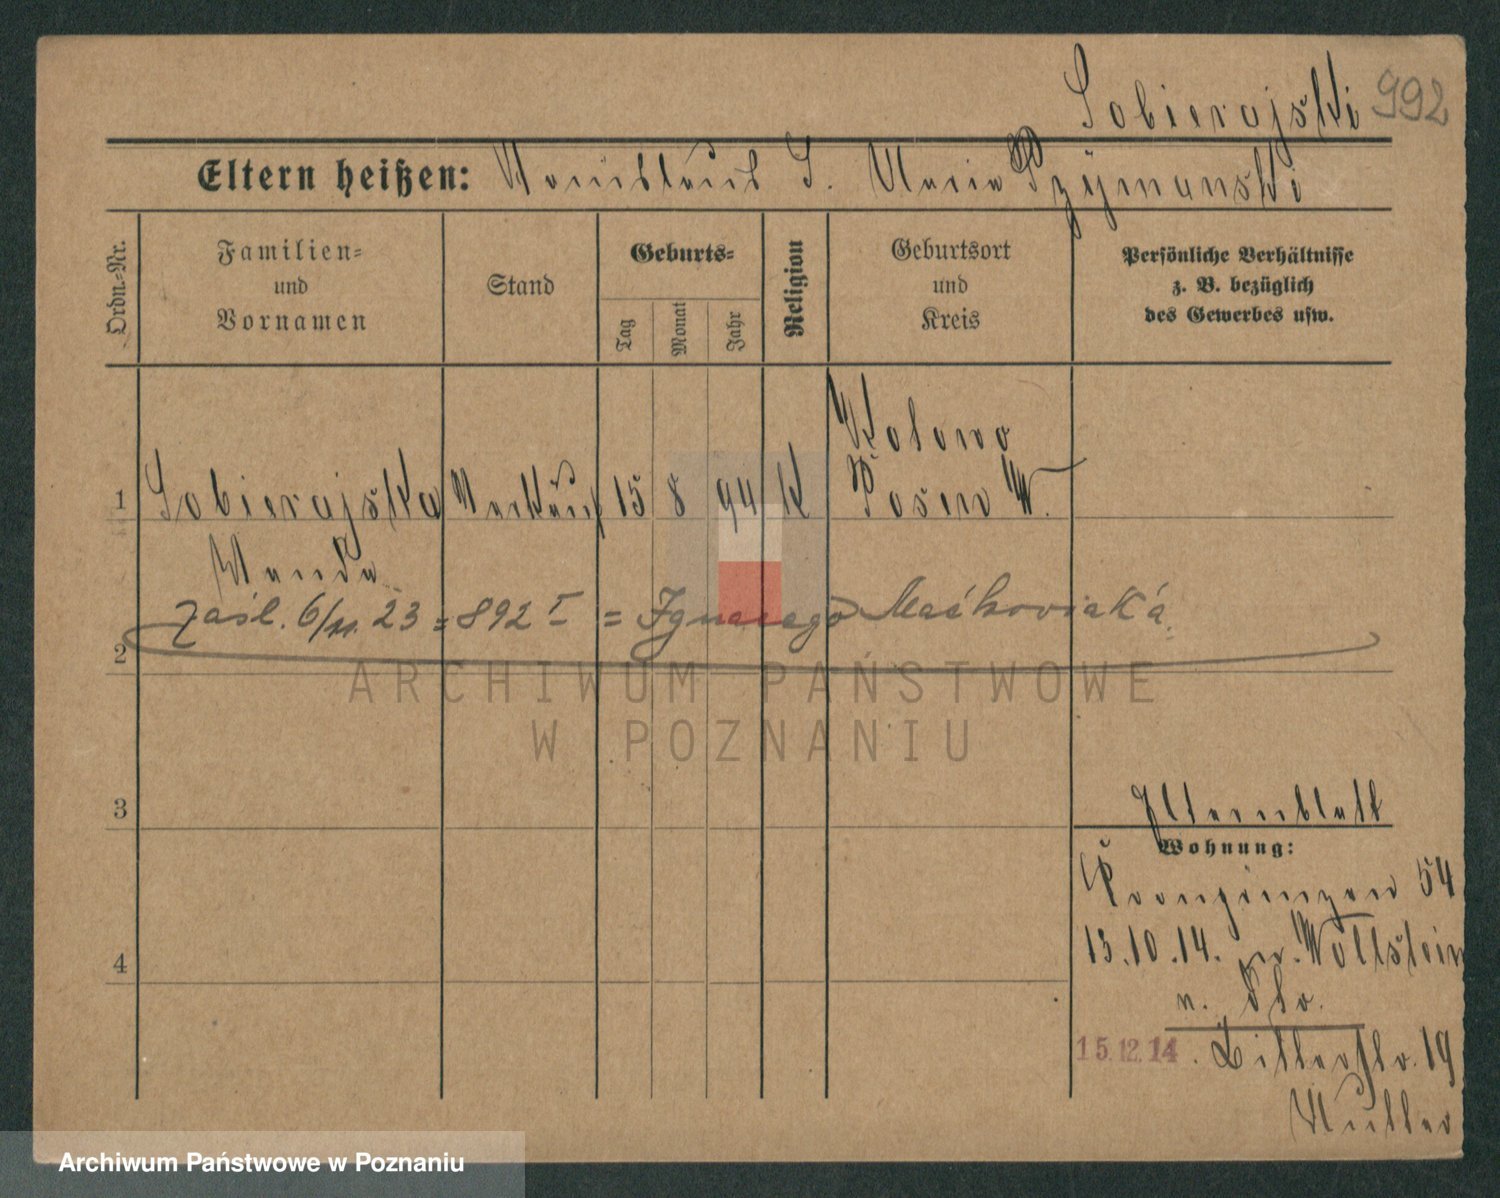 Sobierajski 992
Eltern heißen: Stanislaus S. Maria Szymanski
Ordn.=Nr.
Familien=
und
Vornamen
Stand
Geburts=
Tag
Monat
Jahr
Religion
Geburtsort
und
Kreis
Persönliche Verhältnisse
z. B. bezüglich
des Gewerbes usw.
Kolowo
1 Sobierajska Verkäuf 15 8 94 K Posen W.
Wanda
zaśl. 6/11. 23 = 892 I = Ignacego Maćkowiaka
2
ARCHIWUM PAŃSTWOWE
W POZNANIU
3
Elternblatt
Wohnung:
Kronprinzen 54
4
13.10.14. Wollstein
n. Slo.
15.12.14. Bitterstr. 19
Mutter
Archiwum Państwowe w Poznaniu